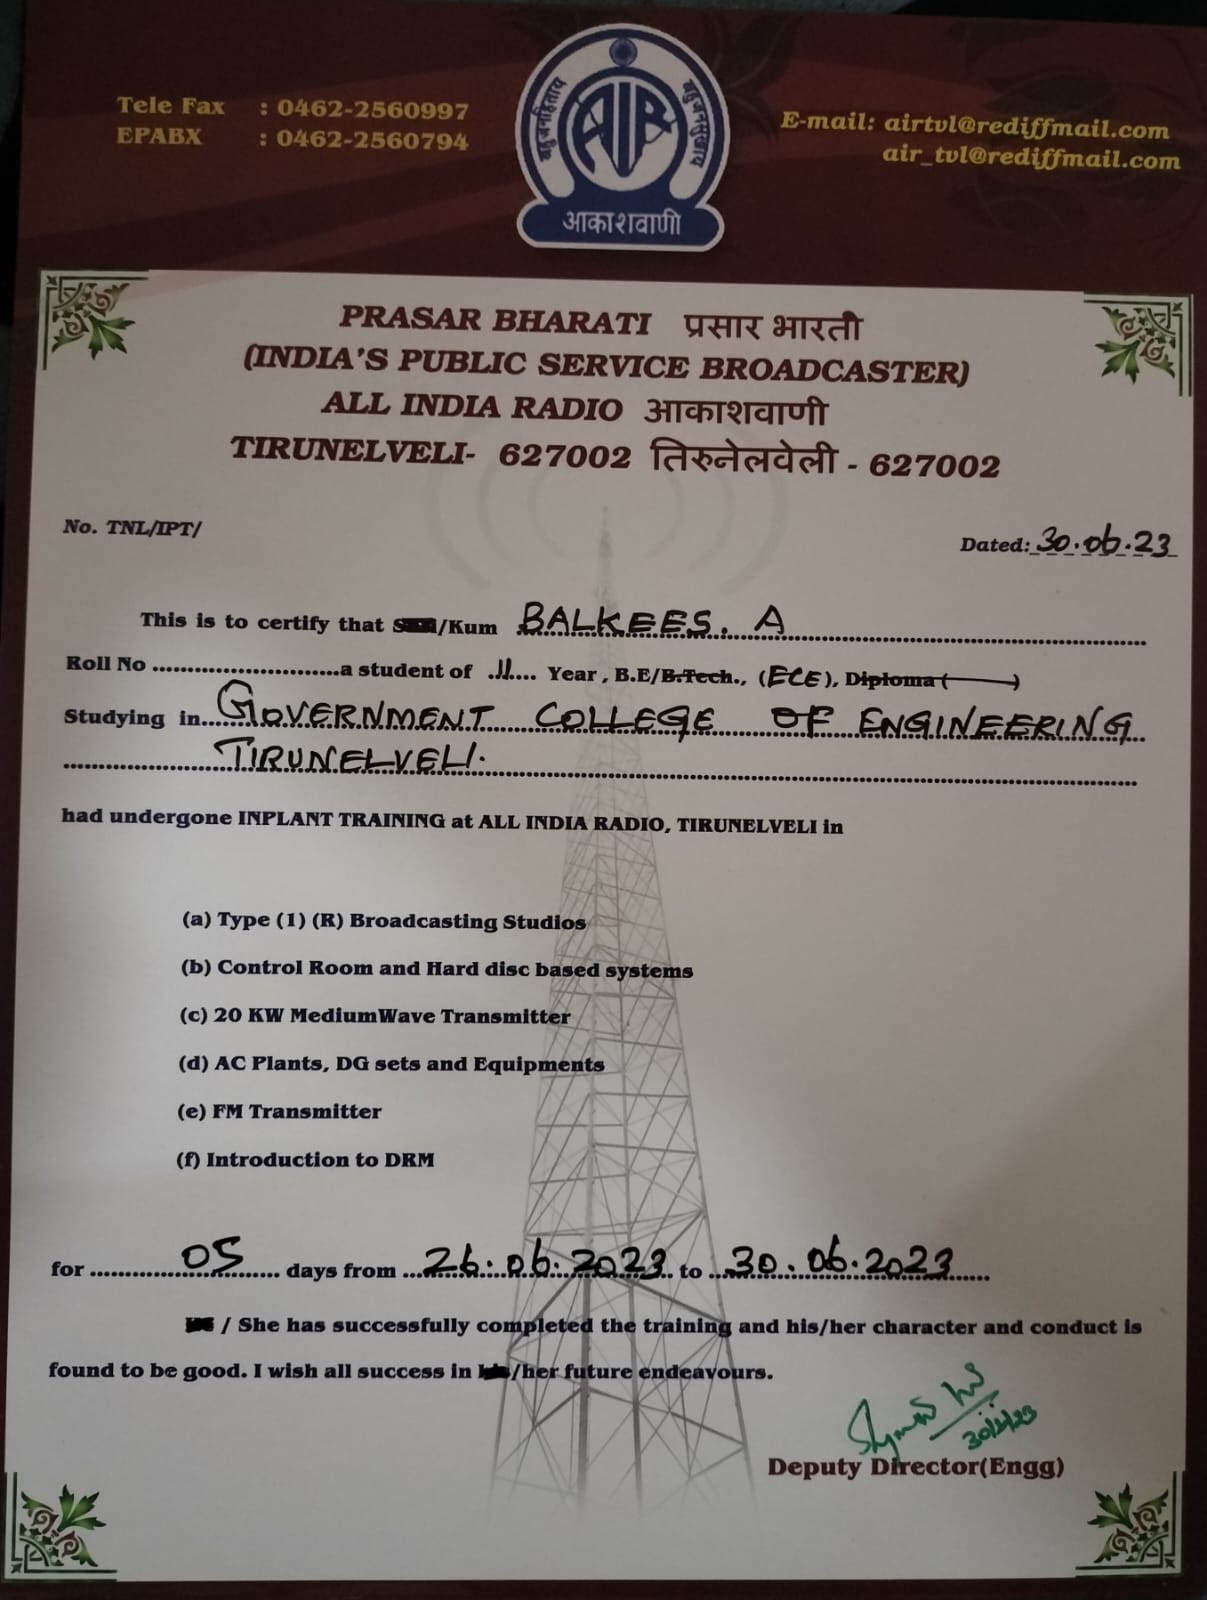 Tele Fax : 0462-2560997
EPABX : 0462-2560794
बहुजनहिताय
बहुजनसुखाय
AIR
आकाशवाणी
E-mail: airtvl@rediffmail.com
air_tvl@rediffmail.com
PRASAR BHARATI प्रसार भारती
(INDIA'S PUBLIC SERVICE BROADCASTER)
ALL INDIA RADIO आकाशवाणी
TIRUNELVELI- 627002 तिरुनेलवेली - 627002
No. TNL/IPT/
Dated: 30.06.23
This is to certify that /Kum BALKEES. A
Roll No ........................a student of .II.... Year , B.E/B.Tech., (ECE), Diploma ( )
Studying in... GOVERNMENT COLLEGE OF ENGINEERING
TIRUNELVELI.
had undergone INPLANT TRAINING at ALL INDIA RADIO, TIRUNELVELI in
(a) Type (1) (R) Broadcasting Studios
(b) Control Room and Hard disc based systems
(c) 20 KW MediumWave Transmitter
(d) AC Plants, DG sets and Equipments
(e) FM Transmitter
(f) Introduction to DRM
for ... 05 ... days from ... 26.06.2023 .. to ... 30.06.2023 ...
/ She has successfully completed the training and his/her character and conduct is
found to be good. I wish all success in /her future endeavours.
Deputy Director(Engg)